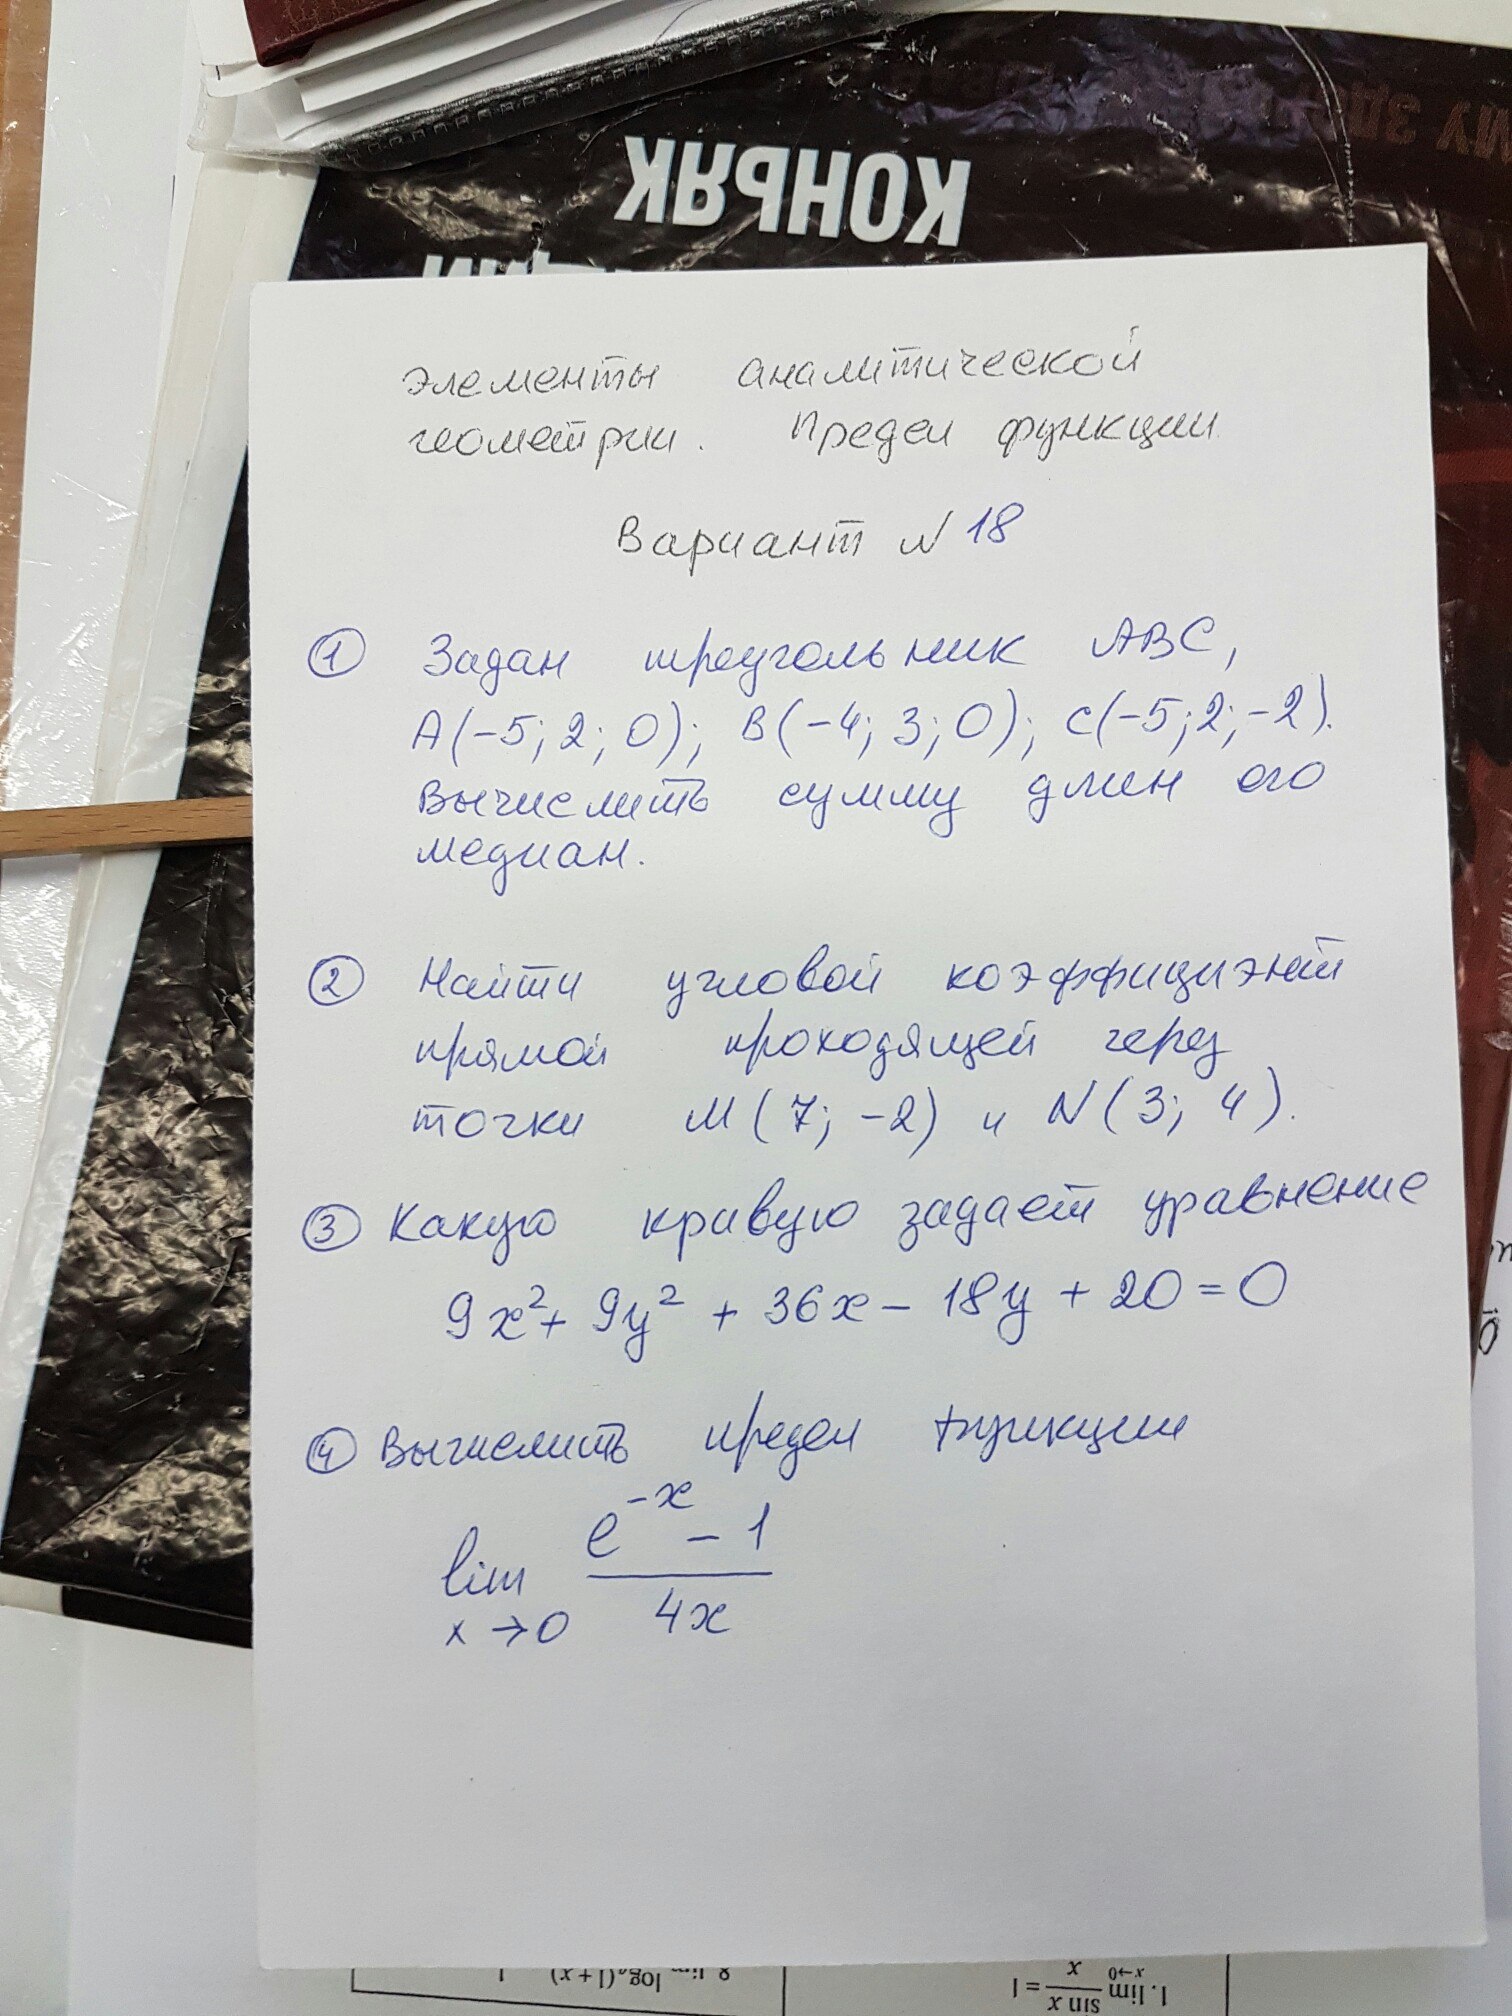 КОНЬЯК
Элементы аналитической
геометрии. Предел функции.
Вариант N 18
① Задан треугольник ABC,
A(-5; 2; 0); B(-4; 3; 0); C(-5; 2; -2).
Вычислить сумму длин его
медиан.
② Найти угловой коэффициэнт
прямой проходящей через
точки M(7; -2) и N(3; 4).
③ Какую кривую задает уравнение
9x² + 9y² + 36x - 18y + 20 = 0
④ Вычислить предел функции
lim x→0 (e^{-x} - 1)/(4x)
8. lim log_a(1+x)
1. lim x→0 sin x / x = 1